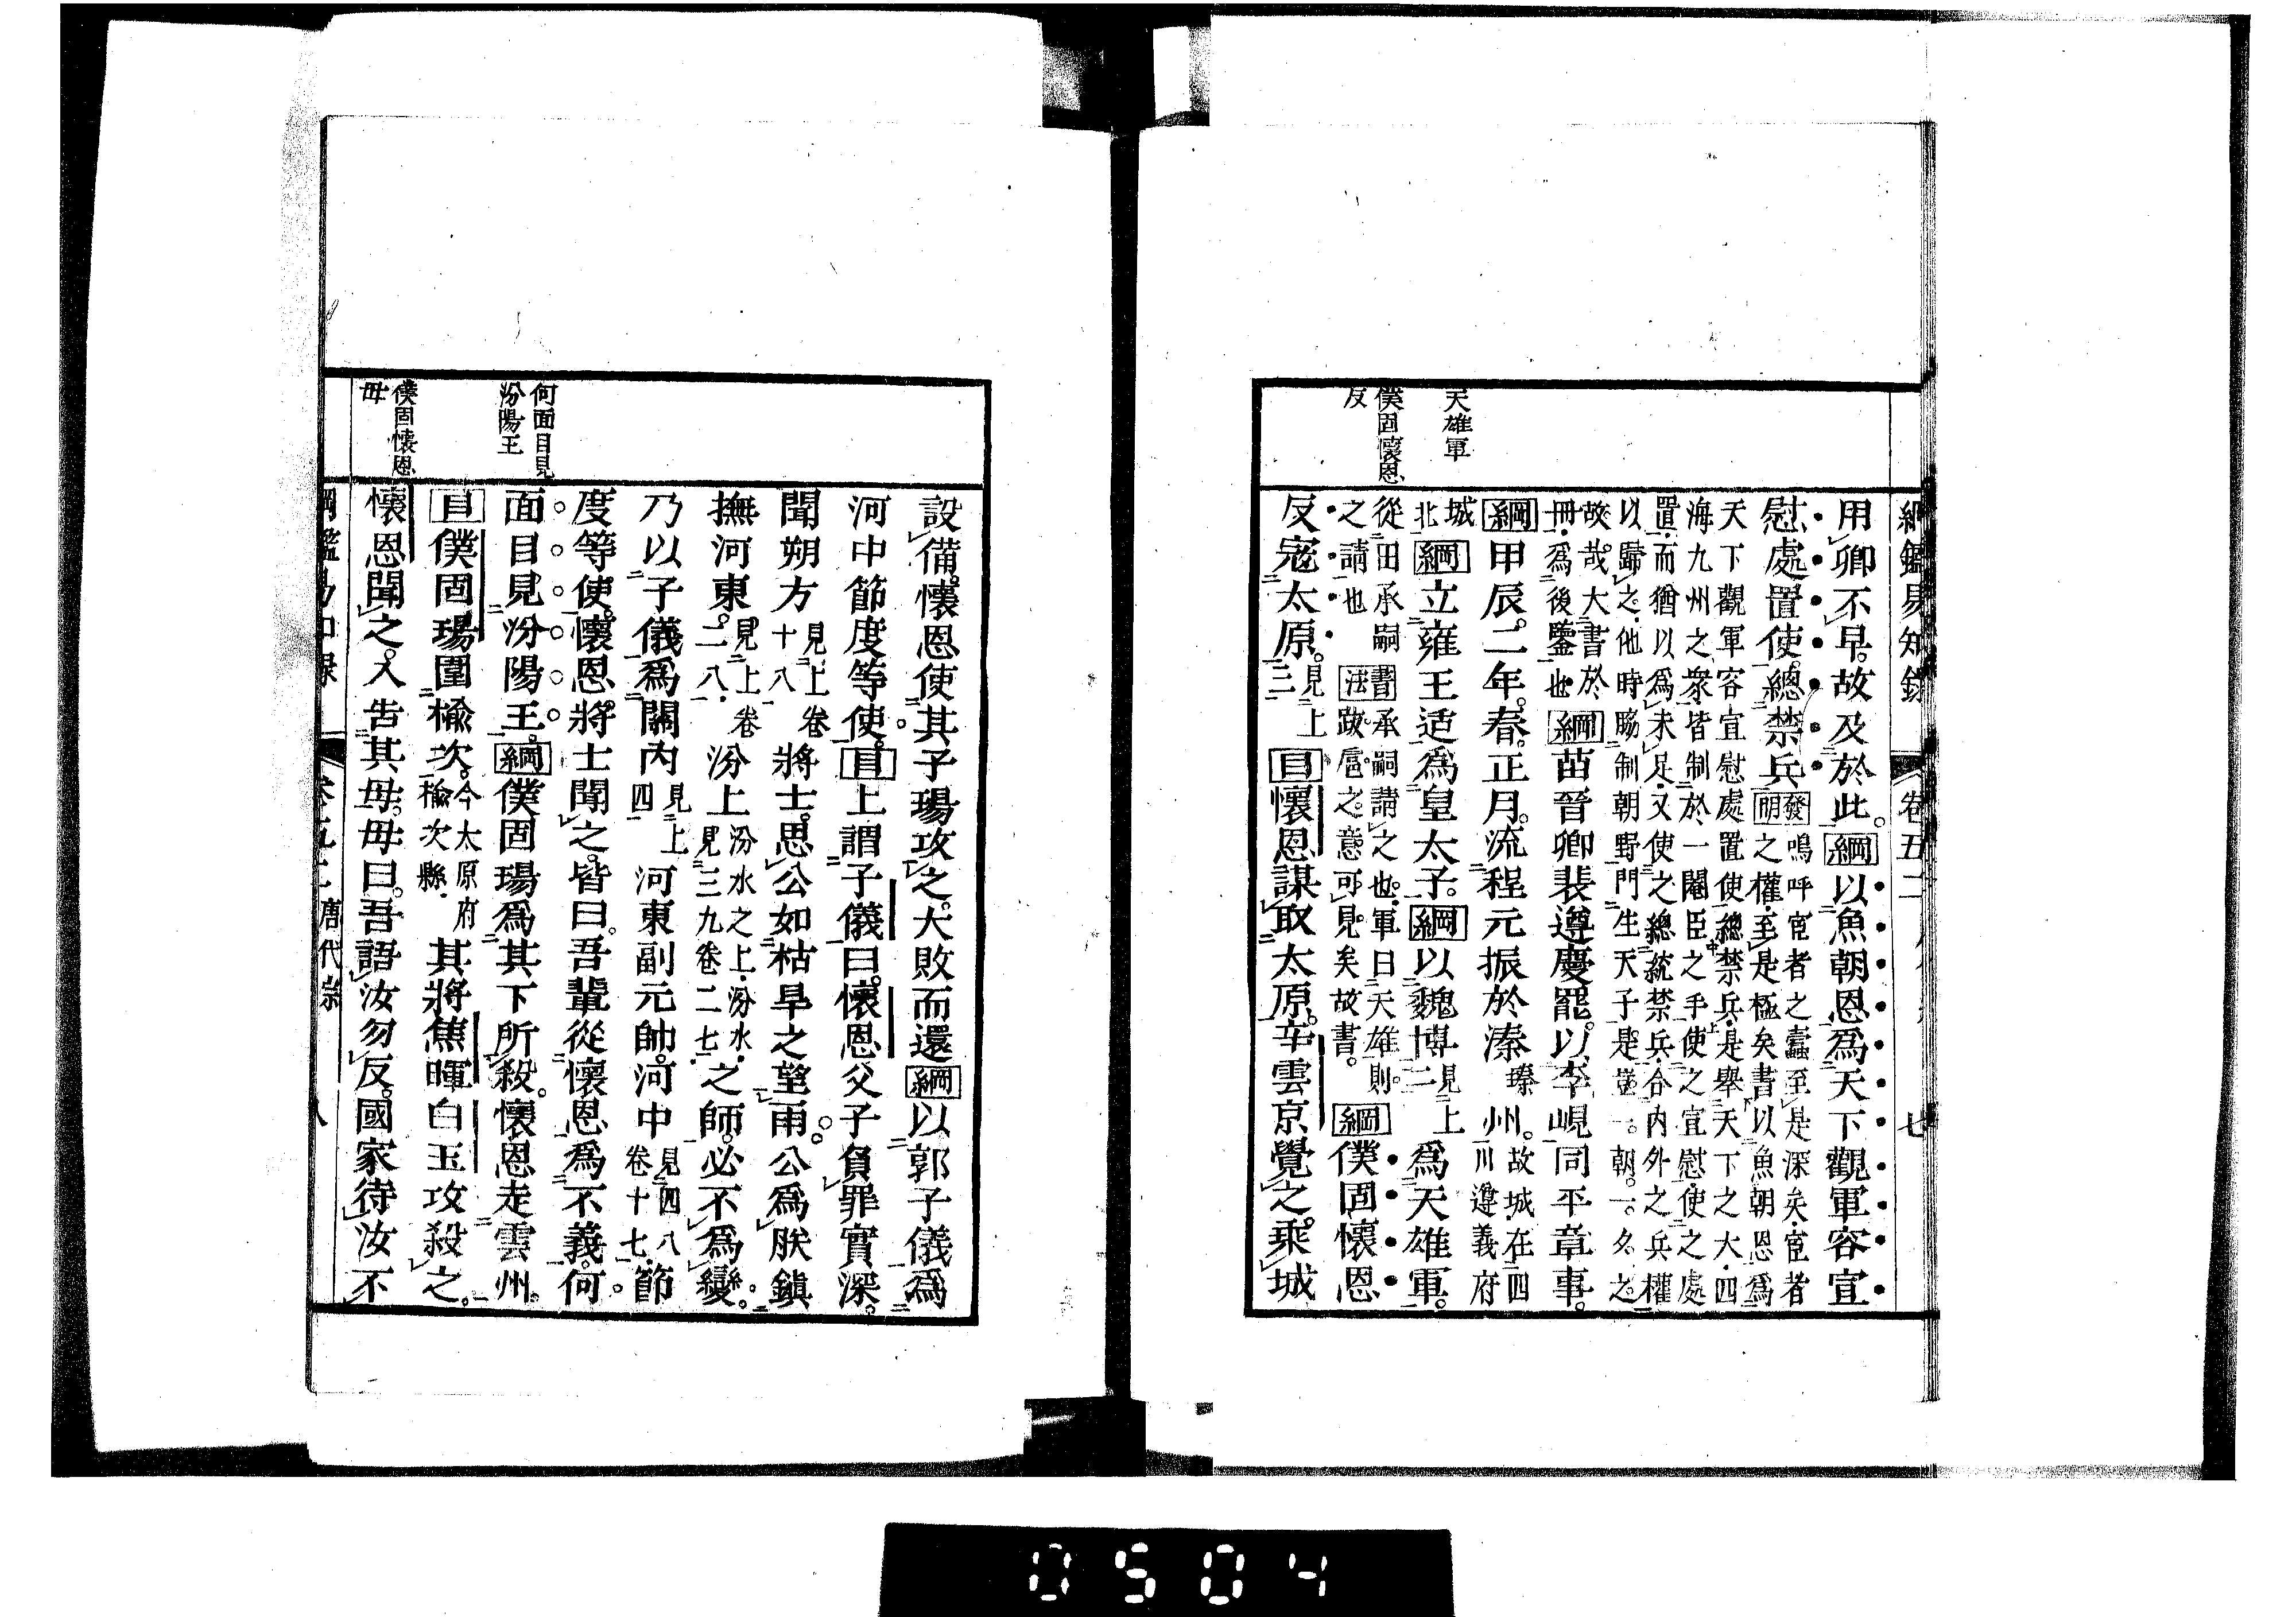 綱鑑易知錄 卷五二 七
天雄軍
僕固懷恩
反
用卿不早。故及於此。綱以魚朝恩爲天下觀軍容宣
慰處置使。總禁兵發明嗚呼宦者之蠹至是深矣宦者
之權至是極矣書以魚朝恩爲
天下觀軍容宣慰處置使總禁兵是舉天下之大四
海九州之衆皆制於一閹臣之手使之宣慰使之處
置而猶以爲未足又使之總統禁兵合內外之兵權
以歸之他時脇制朝野門生天子是豈一朝一夕之
故哉大書於
冊爲後鑒也綱苗晉卿裴遵慶罷。以李峴同平章事。
綱甲辰。二年。春。正月。流程元振於溱瑧州。故城在四
川遵義府
城
北綱立雍王适爲皇太子。綱以魏博見上
二爲天雄軍。
從田承嗣
之請也書法承嗣請之也軍曰天雄則
跋扈之意可見矣故書。綱僕固懷恩
反寇太原。見上
三目懷恩謀取太原。辛雲京覺之。乘城
設備。懷恩使其子瑒攻之。大敗而還綱以郭子儀爲
河中節度等使。目上謂子儀曰。懷恩父子負罪實深。
聞朔方見上卷
十八將士。思公如枯旱之望雨。公爲朕鎮
撫河東。見上卷
二八汾上汾水之上汾水
見三九卷二七之師。必不爲變。
乃以子儀爲關內見上
四河東副元帥。河中見四八
卷十七節
度等使。懷恩將士聞之。皆曰。吾輩從懷恩爲不義。何
面目見汾陽王。綱僕固瑒爲其下所殺。懷恩走雲州。
目僕固瑒圍楡次。今太原府
楡次縣其將焦暉白玉攻殺之。
懷恩聞之。入告其母。母曰。吾語汝勿反。國家待汝不
何面目見
汾陽王
僕固懷恩
母
綱鑑易知錄 卷五二 唐代宗 八
0504